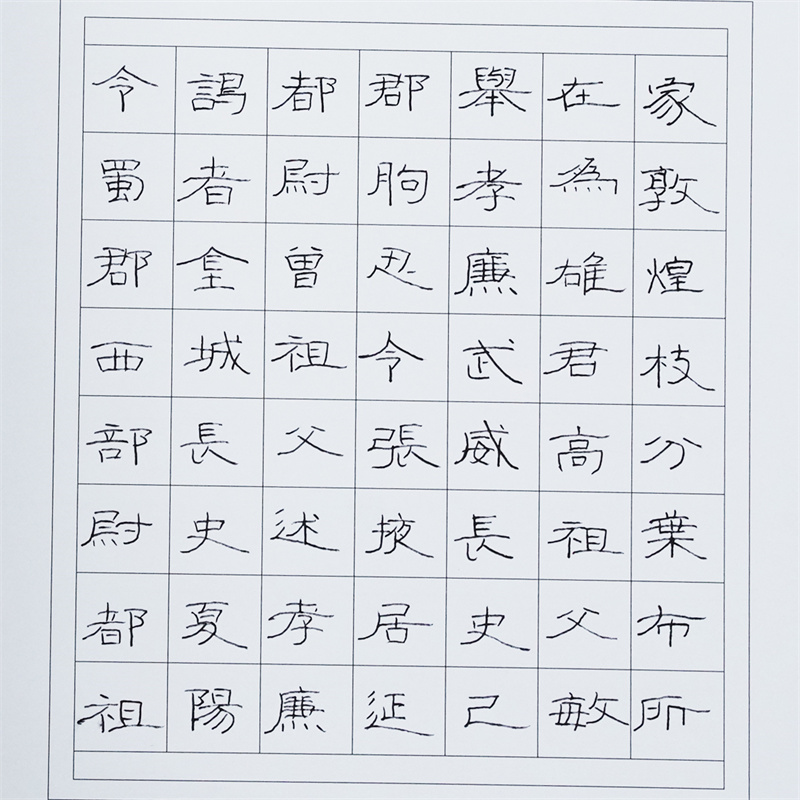 家敦煌枝分葉布所
在為雄君高祖父敏
舉孝廉武威長史己
郡朐忍令張掖居延
都尉曾祖父述孝廉
謁者金城長史夏陽
令蜀郡西部尉都祖